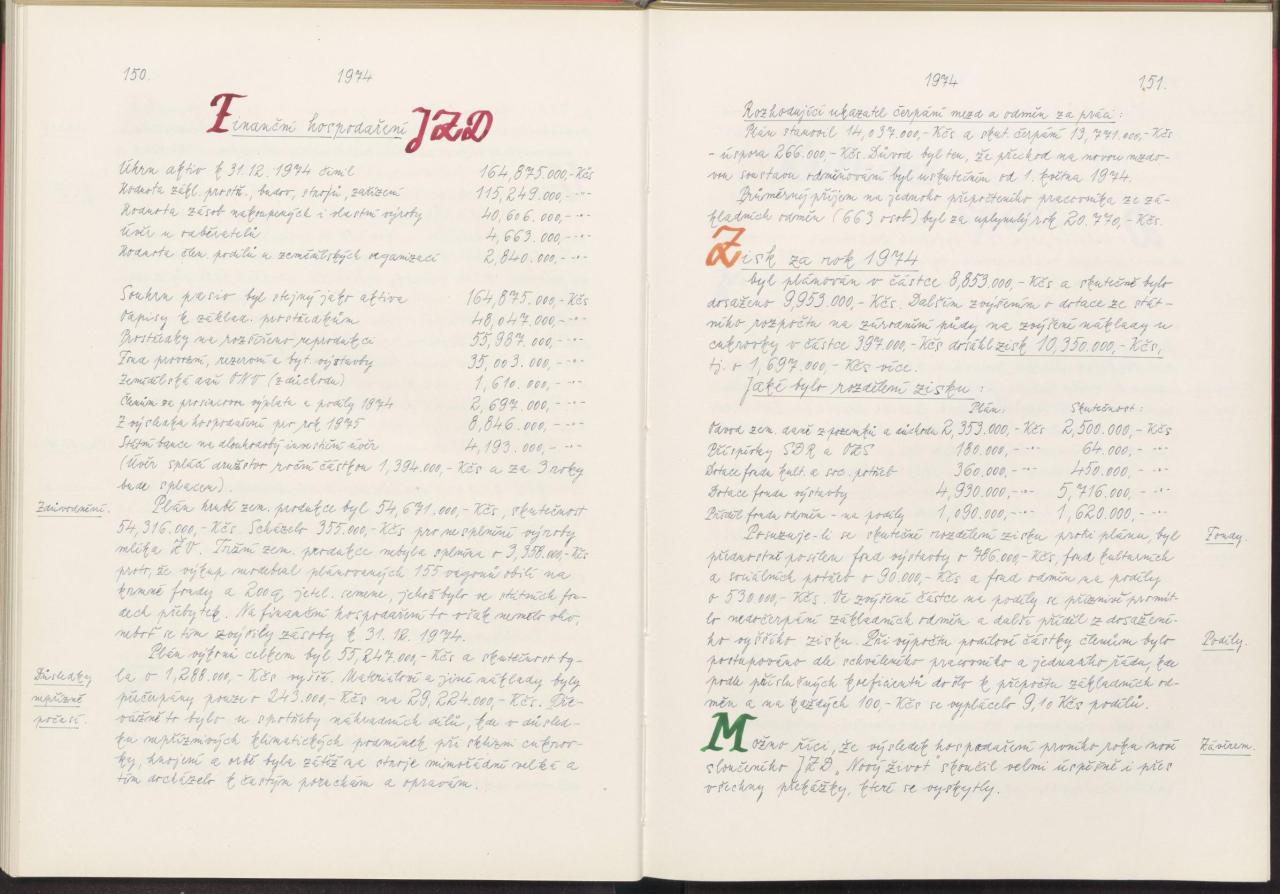 150.
1974
Finanční hospodaření JZD
Úhrn aktiv k 31.12. 1974 činil 164,875.000,-Kčs
Hodnota zákl. prostř., budov, strojů, zařízení 115,249.000,- -"-
Hodnota zásob nakoupených i vlastní výroby 40,606.000,- -"-
Úvěr u odběratelů 4,663.000,- -"-
Hodnota člen. podílů u zemědělských organizací 2,840.000,- -"-
Souhrn pasiv byl stejný jako aktiva 164,875.000,-Kčs
Odpisy k základ. prostředkům 48,047.000,- -"-
Prostředky na rozšířenou reprodukci 55,987.000,- -"-
Fond provozní, rezervní a byt. výstavby 35,003.000,- -"-
Zemědělská daň ONV (z důchodu) 1,610.000,- -"-
Členům za prosincovou výplatu a podíly 1974 2,697.000,- -"-
Z výsledku hospodaření pro rok 1975 8,846.000,- -"-
Státní bance na dlouhodobý investiční úvěr 4,193.000,- -"-
(Úvěr splácí družstvo roční částkou 1,394.000,-Kčs a za 3 roky
bude splacen).
Zdůvodnění.
Plán hrubé zem. produkce byl 54,671.000,-Kčs, skutečnost
54,316.000,- Kčs. Scházelo 355.000,-Kčs pro nesplnění výroby
mléka ŽV. Tržní zem. produkce nebyla splněna o 3,358.000,-Kčs
proto, že výkup neodebral plánovaných 155 vagonů obilí na
krmné fondy a 200 q jetel. semene, jehož bylo ve státních fon-
dech přebytek. Na finanční hospodaření to však nemělo vliv,
neboť se tím zvýšily zásoby k 31. 12. 1974.
Plán výkonů celkem byl 55,247.000,-Kčs a skutečnost by-
la o 1,288.000,- Kčs vyšší. Materiálové a jiné náklady byly
překročeny pouze o 243.000,-Kčs na 29,224.000,-Kčs. Pře-
vážně to bylo u spotřeby náhradních dílů, kde v důsled-
Důsledky
nepřízně
počasí.
ku nepříznivých klimatických podmínek při sklizni cukrov-
ky, hnojení a orbě byla zátěž na stroje mimořádně velká a
tím docházelo k častým poruchám a opravám.
1974
151.
Rozhodující ukazatel čerpání mezd a odměn za práci:
Plán stanovil 14,037.000,-Kčs a skut. čerpání 13,771.000,-Kčs
- úspora 266.000,-Kčs. Důvod byl ten, že přechod na novou mzdo-
vou soustavu odměňování byl uskutečněn od 1. května 1974.
Průměrný příjem na jednoho přepočteného pracovníka ze zá-
kladních odměn (663 osob) byl za uplynulý rok 20.770,-Kčs.
Zisk za rok 1974
byl plánován v částce 8,853.000,-Kčs a skutečně bylo
dosaženo 9,953.000,- Kčs. Dalším zvýšením o dotace ze stát-
ního rozpočtu na zúrodnění půdy na zvýšené náklady u
cukrovky v částce 397.000,-Kčs dosáhl zisk 10,350.000,-Kčs,
tj. o 1,697.000,- Kčs více.
Jaké bylo rozdělení zisku:
Plán: Skutečnost:
Odvod zem. daně z pozemků a důchodu 2,353.000,-Kčs 2,500.000,-Kčs
Příspěvky SDR a OZS 180.000,- -"- 64.000,- -"-
Dotace fondu kult. a soc. potřeb 360.000,- -"- 450.000,- -"-
Dotace fondu výstavby 4,930.000,- -"- 5,716.000,- -"-
Příděl fondu odměn - na podíly 1,090.000,- -"- 1,620.000,- -"-
Fondy.
Posuzuje-li se skutečné rozdělení zisku proti plánu, byl
přednostně posílen fond výstavby o 786.000,-Kčs, fond kulturních
a sociálních potřeb o 90.000,-Kčs a fond odměn na podíly
o 530.000,-Kčs. Ve zvýšené částce na podíly se příznivě promít-
lo nedočerpání základních odměn a další příděl z dosažené-
ho vyššího zisku. Při výpočtu podílové částky členům bylo
Podíly.
postupováno dle schváleného pracovního a jednacího řádu, kde
podle příslušných koeficientů došlo k přepočtu základních od-
měn a na každých 100,-Kčs se vyplácelo 9,10 Kčs podílů.
Závěrem.
Možno říci, že výsledek hospodaření prvního roku nově
sloučeného JZD „Nový život" skončil velmi úspěšně i přes
všechny překážky, které se vyskytly.